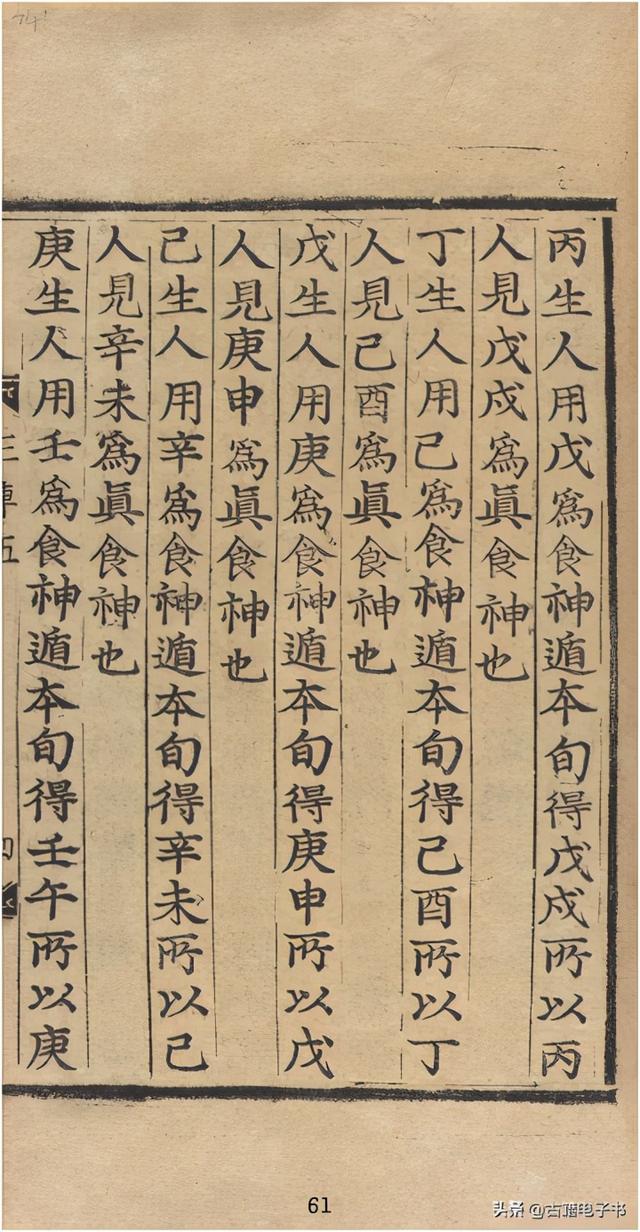 丙生人用戊爲食神遁本旬得戊戌所以丙
人見戊戌爲眞食神也
丁生人用己爲食神遁本旬得己酉所以丁
人見己酉爲眞食神也
戊生人用庚爲食神遁本旬得庚申所以戊
人見庚申爲眞食神也
己生人用辛爲食神遁本旬得辛未所以己
人見辛未爲眞食神也
庚生人用壬爲食神遁本旬得壬午所以庚
61
头条@古籍电子书